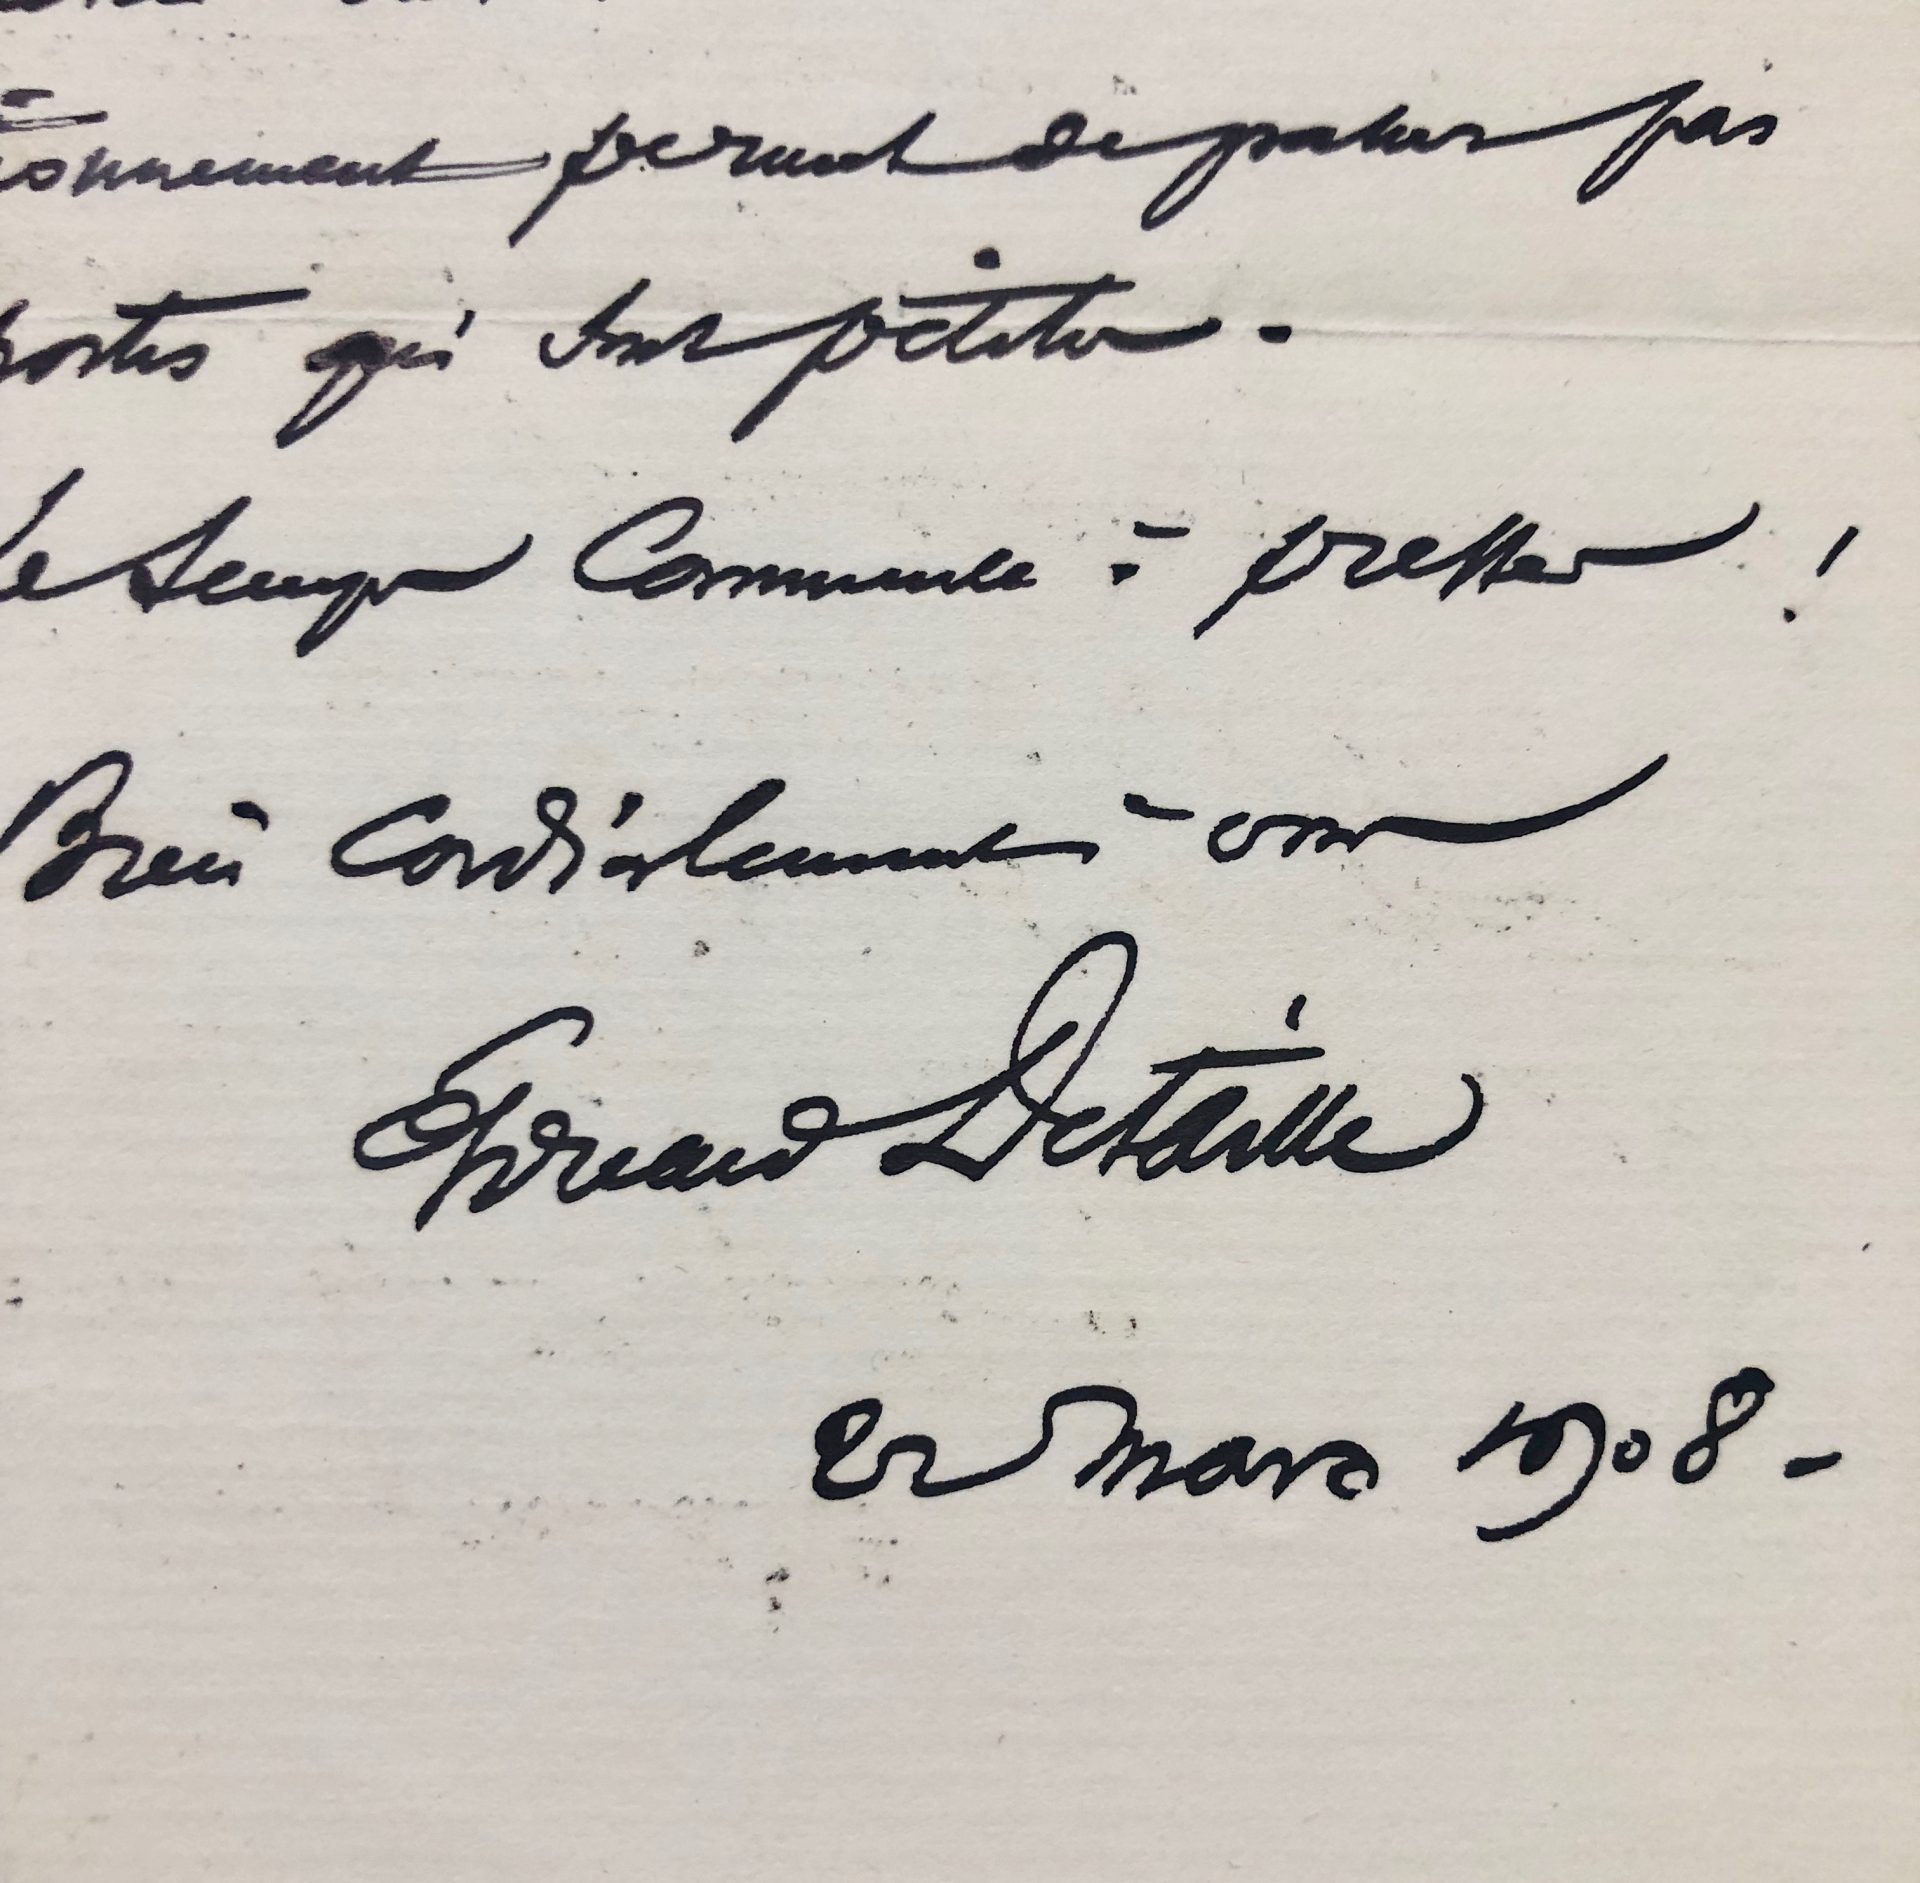 permet de passer par
portes qui sont petites.
Le temps commence à presser !
Bien cordialement à vous
Edouard Detaille
22 mars 1908 -